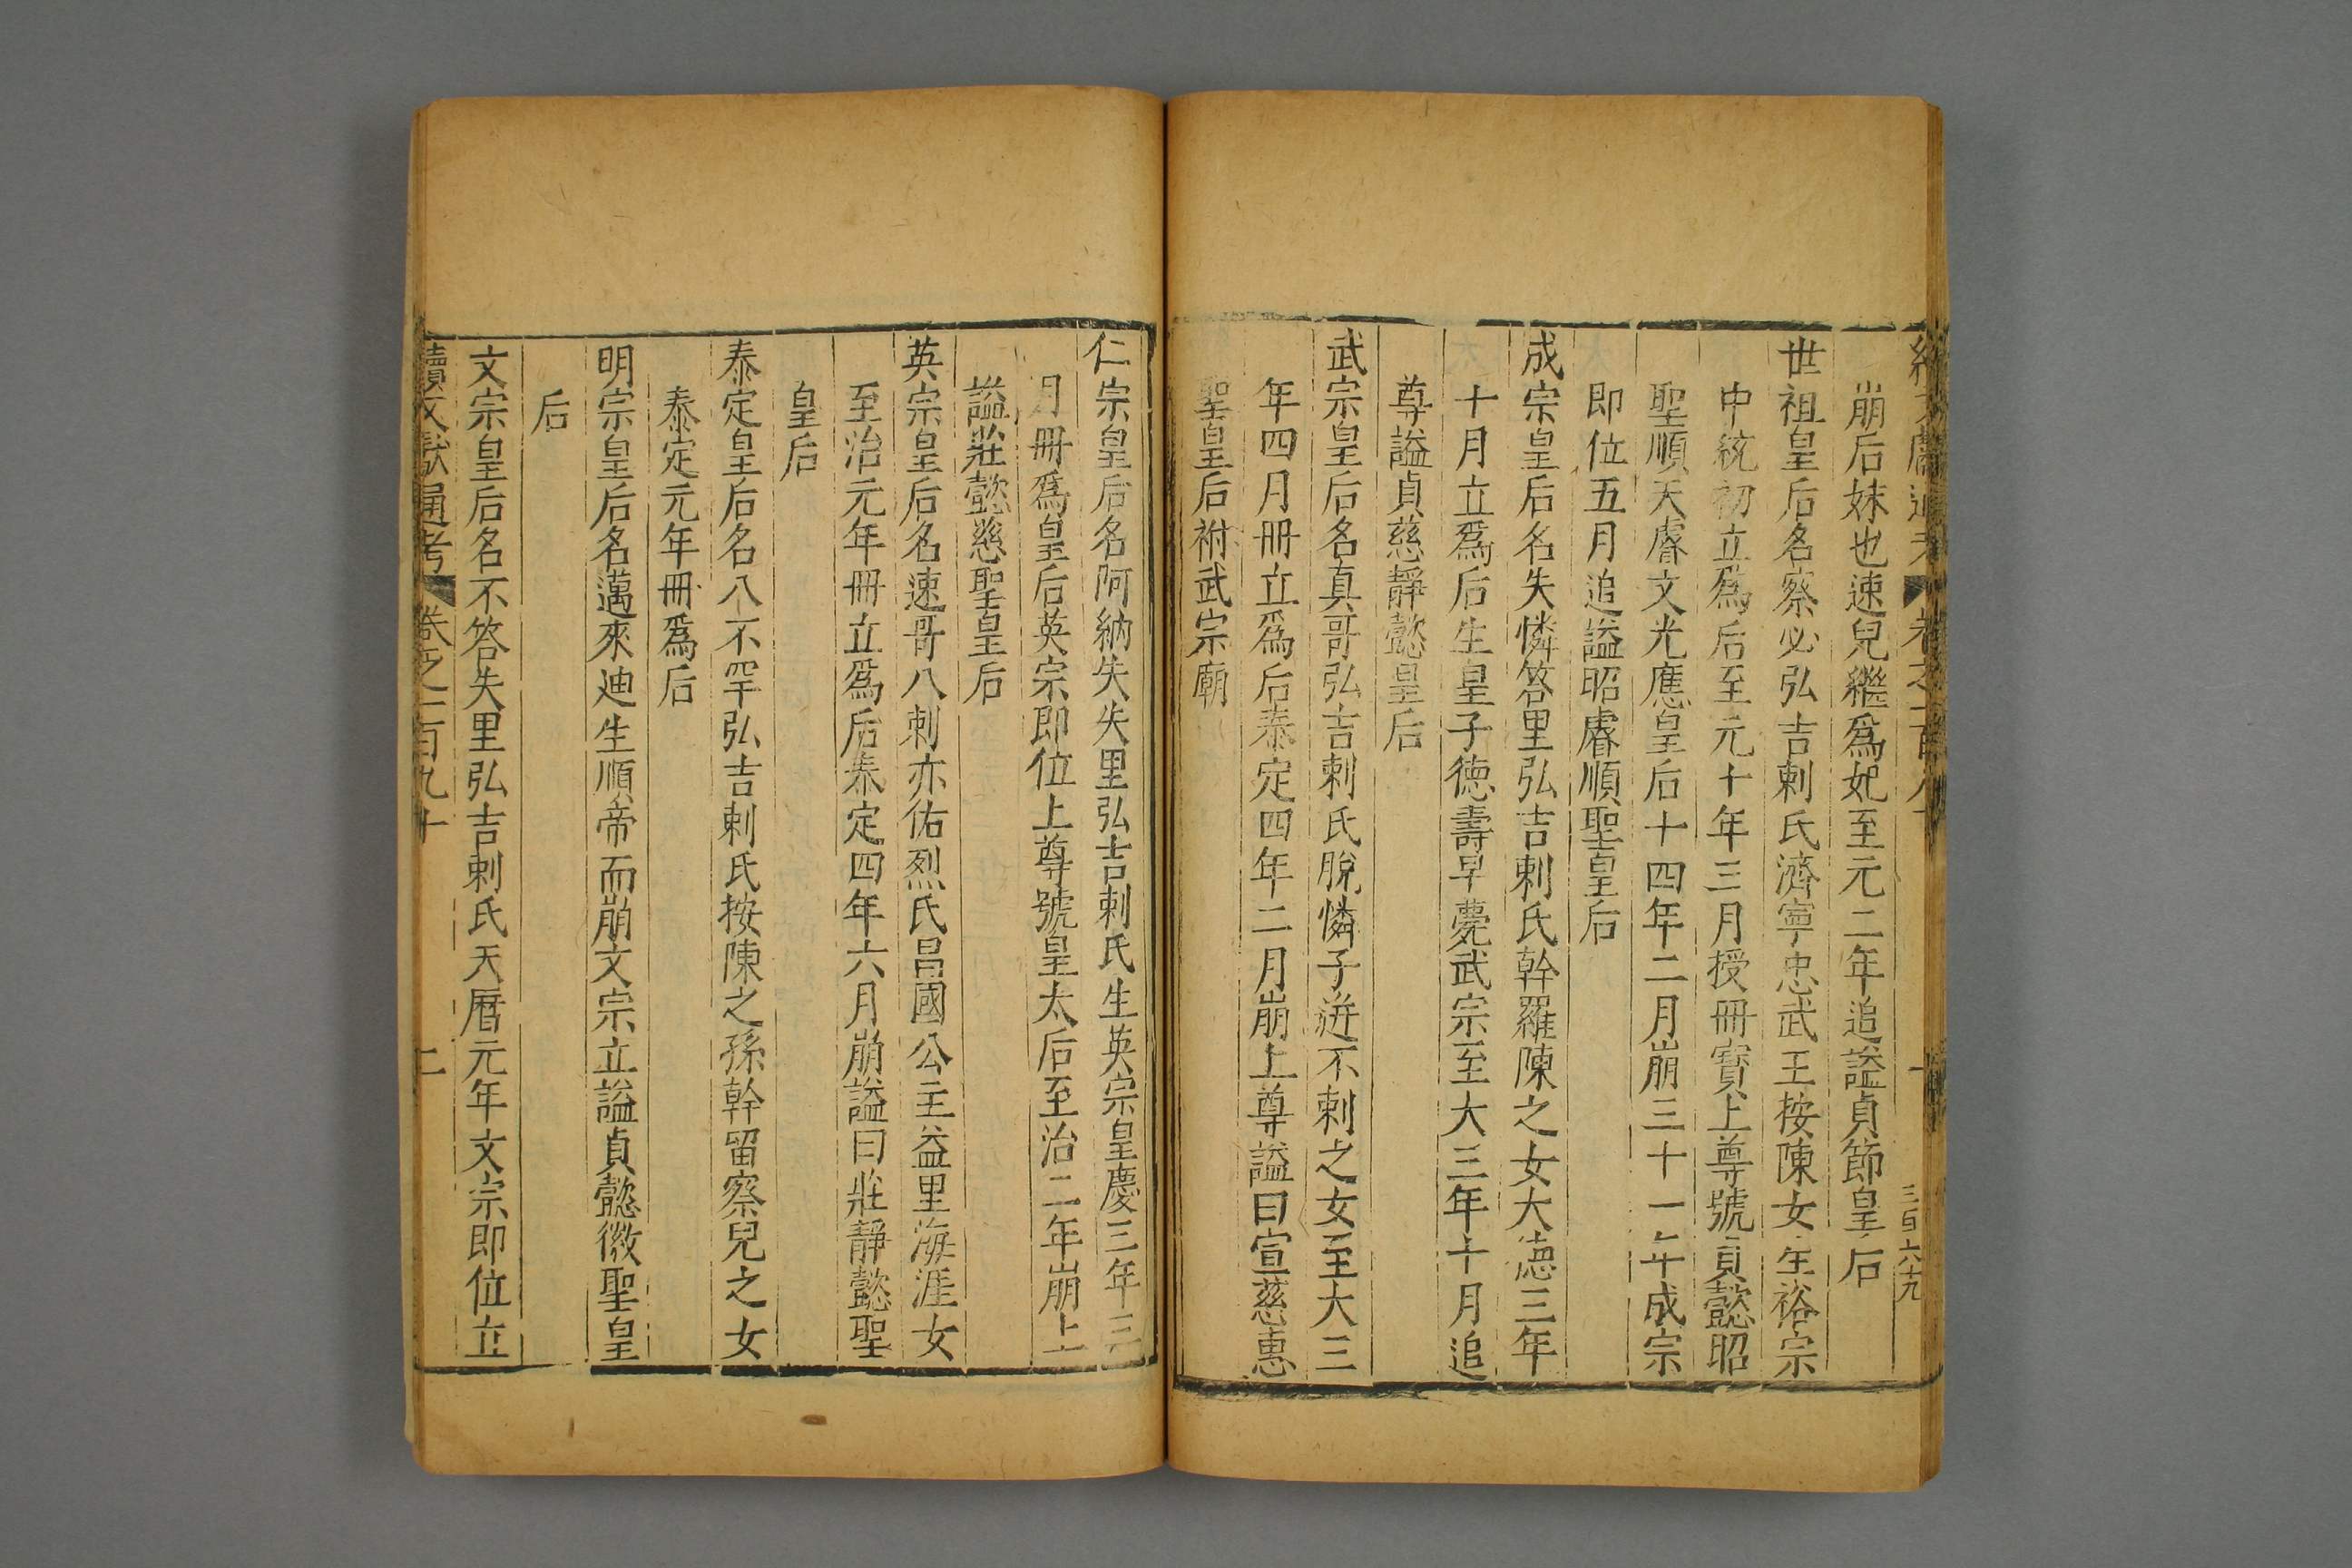 崩后妹也速兒繼爲妃至元二年追謚貞節皇后
世祖皇后名察必弘吉剌氏濟寧忠武王按陳女生裕宗
中統初立爲后至元十年三月授冊寳上尊號貞懿昭
聖順天睿文光應皇后十四年二月崩三十一年成宗
即位五月追謚昭睿順聖皇后
成宗皇后名失憐答里弘吉剌氏斡羅陳之女大德三年
十月立爲后生皇子德壽早薨武宗至大三年十月追
尊謚貞慈靜懿皇后
武宗皇后名真哥弘吉剌氏脫憐子迸不剌之女至大三
年四月冊立爲后泰定四年二月崩上尊謚曰宣慈惠
聖皇后祔武宗廟
仁宗皇后名阿納失失里弘吉剌氏生英宗皇慶三年三
月冊爲皇后英宗即位上尊號皇太后至治二年崩上
謚莊懿慈聖皇后
英宗皇后名速哥八剌亦佑烈氏昌國公主益里海涯女
至治元年冊立爲后泰定四年六月崩謚曰莊靜懿聖
皇后
泰定皇后名八不罕弘吉剌氏按陳之孫斡留察兒之女
泰定元年冊爲后
明宗皇后名邁來迪生順帝而崩文宗立謚貞懿徽聖皇
后
文宗皇后名不答失里弘吉剌氏天曆元年文宗即位立
續文獻通考 卷之一百九十 二